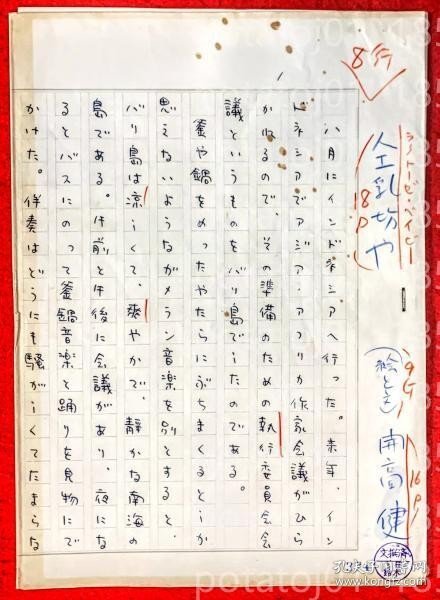 8行
ラクトーゼ・ベイビー
人工乳坊や
18P
9行
(絵と文)
開高健
16P
八月にインドネシアへ行った。来年、イン
ドネシアでアジア・アフリカ作家会議がひら
かれるので、その準備のための執行委員会会
議というものをバリ島でしたのである。
釜や鍋をめったやたらにぶちまくるとしか
思えないようなガメラン音楽を別とすると、
バリ島は涼しくて、爽やかで、静かな南海の
島である。午前と午後に会議があり、夜にな
るとバスにのって釜鍋音楽と踊りを見物にで
かけた。伴奏はどうにも騒がしくてたまらな
孔夫子旧书网
www.kongfz.com